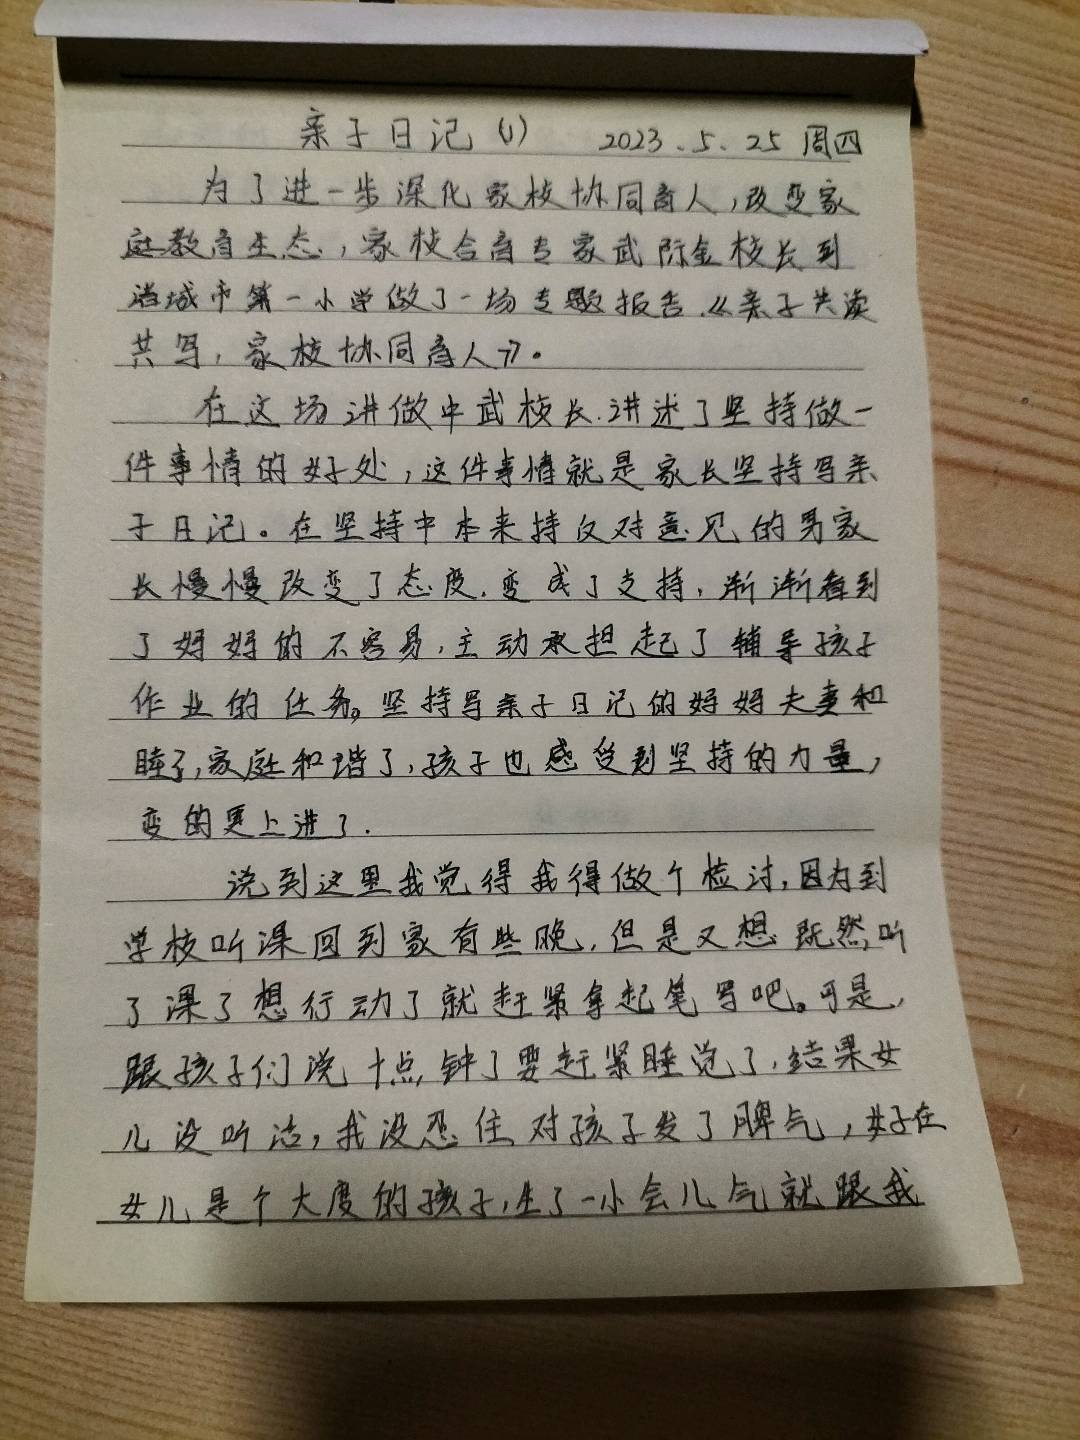 亲子日记(1) 2023.5.25 周四
为了进一步深化家校协同育人,改变家
庭教育生态,家校合育专家武际金校长到
诸城市第一小学做了一场专题报告《亲子共读
共写,家校协同育人》。
在这场讲做中武校长讲述了坚持做一
件事情的好处,这件事情就是家长坚持写亲
子日记。在坚持中本来持反对意见的男家
长慢慢改变了态度,变成了支持,渐渐看到
了妈妈的不容易,主动承担起了辅导孩子
作业的任务。坚持写亲子日记的妈妈夫妻和
睦了,家庭和谐了,孩子也感受到坚持的力量,
变的更上进了.
说到这里我觉得我得做个检讨,因为到
学校听课回到家有些晚,但是又想既然听
了课了想行动了就赶紧拿起笔写吧。可是,
跟孩子们说十点钟了要赶紧睡觉了,结果女
儿没听话,我没忍住对孩子发了脾气,好在
女儿是个大度的孩子,生了一小会儿气就跟我